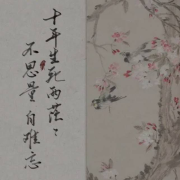 十年生死两茫:
不思量自难忘